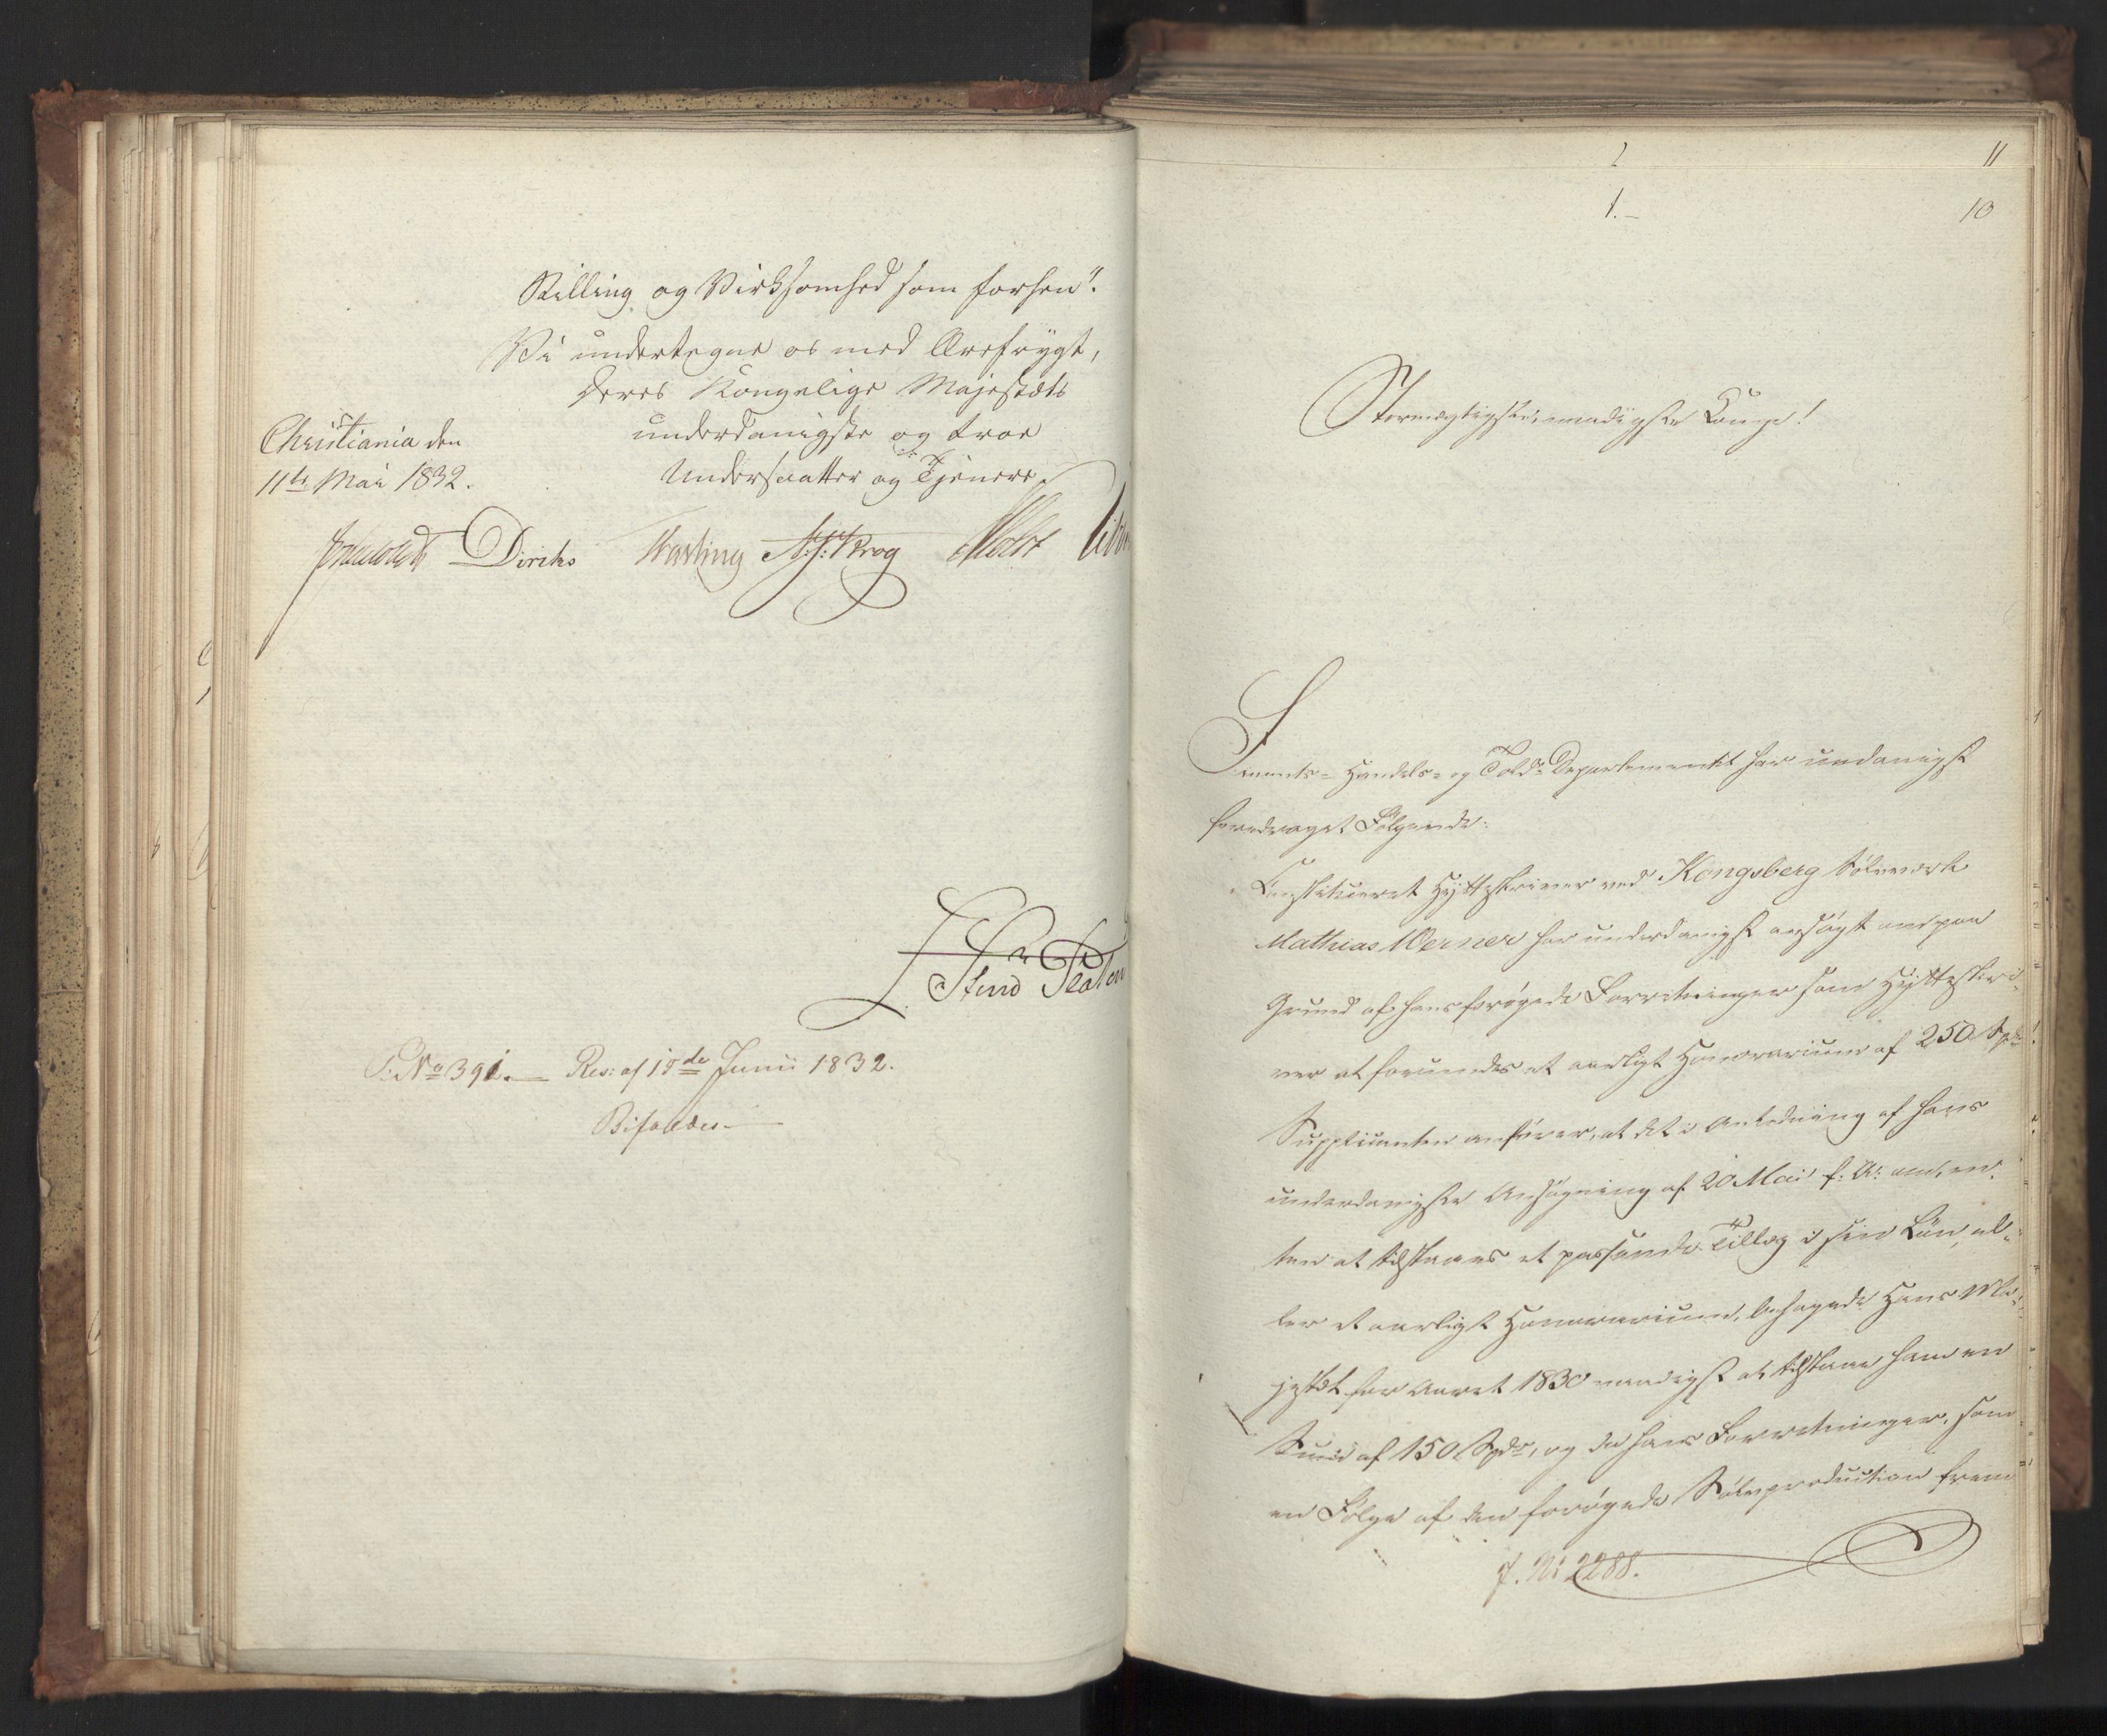 Stilling og Virksomhed som forhen".
Vi undertegne os med Ærefrygt,
Deres Kongelige Majestæts
underdanigste og troe
Undersaatter og Tjenere.
Christiania den
11te Mai 1832.
Diriks A: J: Krog
P: No 391. Res: af 18de Junii 1832.
Bifaldes
2
11
1.
10
Stormægtigste, naadigste Konge!
Finants- Handels- og Told-Departementet har undanigst
foredraget Følgende:
Constitueret Hytteskriver ved Kongsberg Sølvværk
Mathias Werner har underdanigst ansøgt om paa
Grund af hans forøgede Forretninger som Hytteskri-
ver at forundes et aarligt Honorarium af 250 Spd.
Supplicanten anfører, at det i Anledning af hans
underdanigste Ansøgning af 20 Mai f: A: om, en-
ten at tilstaaes et passende Tillæg i sin Løn, el-
ler et aarligt Honorarium, behagede Hans Ma-
jestæt for Aaret 1830 naadigst at tilstaae ham en
Sum af 150 Spd, og da hans Forretninger, som
en Følge af den forøgede Sølvproduction frem
J. No 2288.